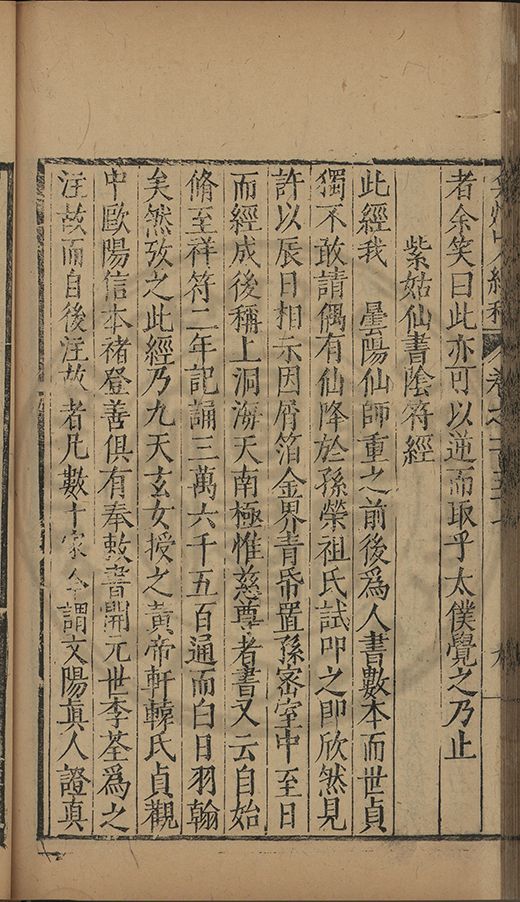 者余笑曰此亦可以逆而取乎太僕覺之乃止
紫姑仙書陰符經
此經我　曇陽仙師重之前後爲人書數本而世貞
獨不敢請偶有仙降於孫榮祖氏試叩之即欣然見
許以辰日相示因屑箔金界青帋置孫密室中至日
而經成後稱上洞海天南極惟慈尊者書又云自始
脩至祥符二年記誦三萬六千五百通而白日羽翰
矣然攷之此經乃九天玄女授之黃帝軒轅氏貞觀
中歐陽信本褚登善俱有奉敕書開元世李荃爲之
注故而自後注故者凡數十家今謂文陽眞人證眞